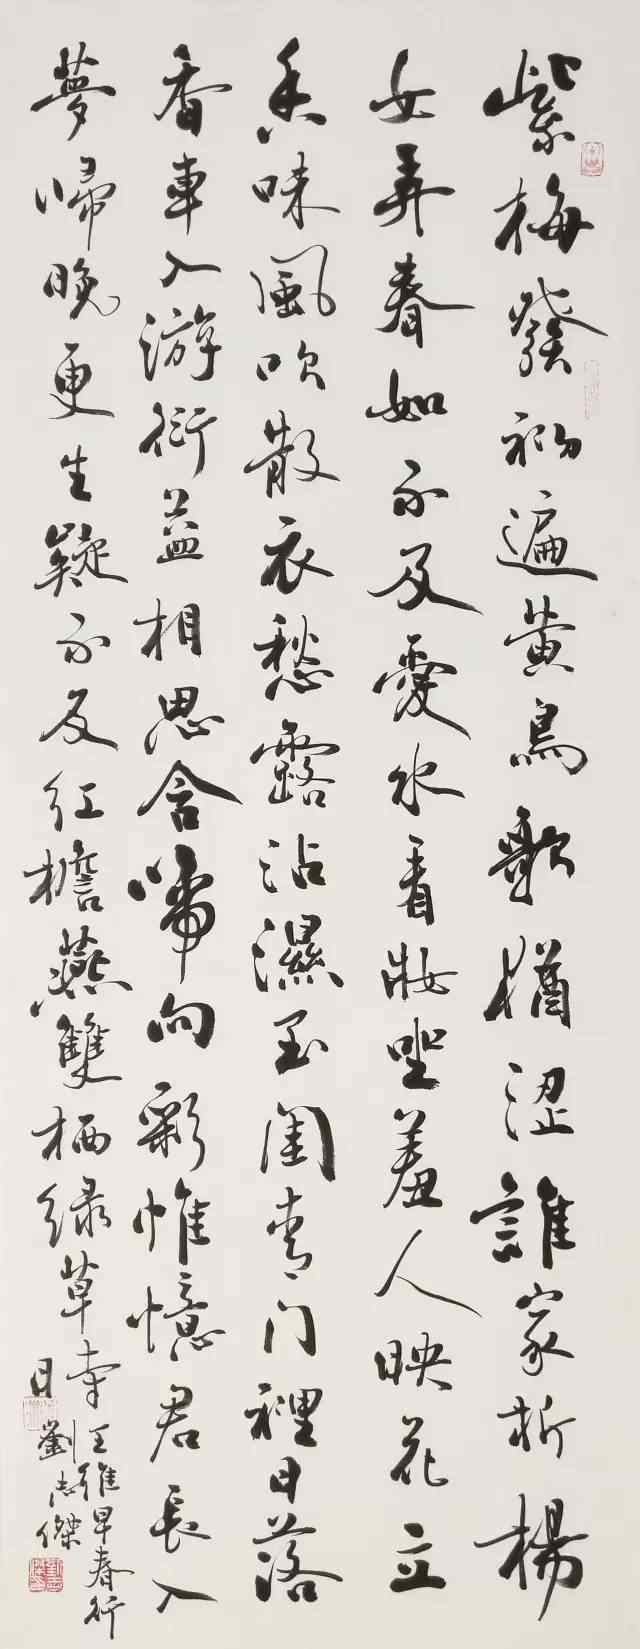 紫梅發初遍黄鳥歌猶涩誰家折楊
女弄春如不及愛水看妝坐羞人映花立
香味風吹散衣愁露沾濕玉閨青门裡日落
香車入游衍益相思含啼向彩帷憶君長入
夢歸晚更生疑不及紅檐燕雙栖绿草時
王維早春行
劉志傑